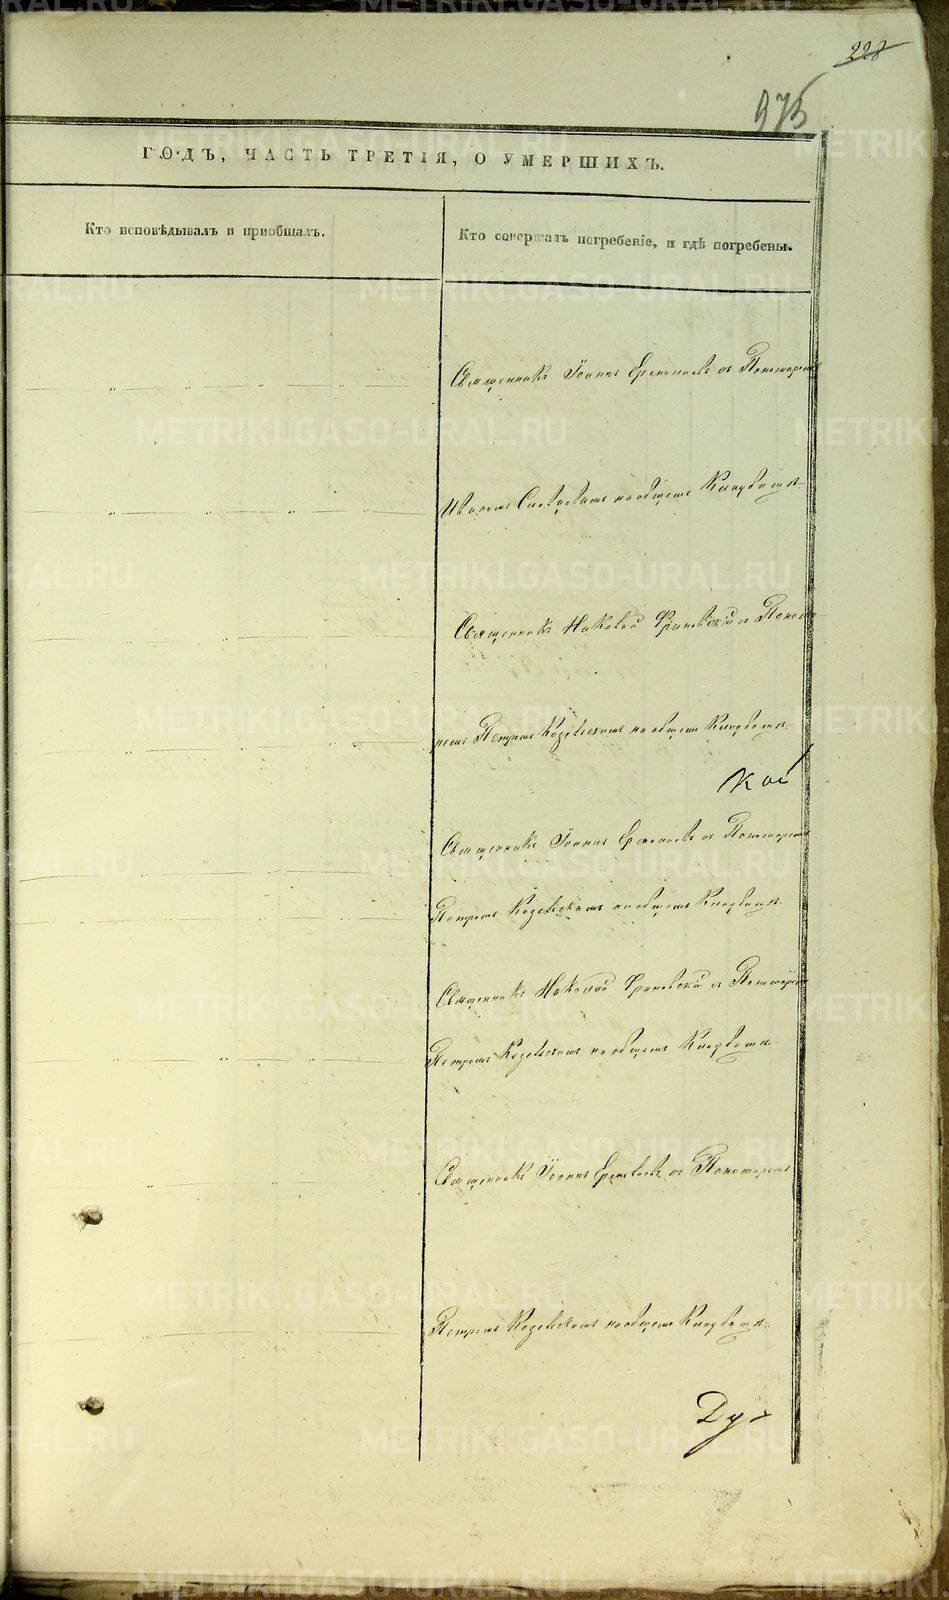 228
973
ГОДЪ, ЧАСТЬ ТРЕТІЯ, О УМЕРШИХЪ.
Кто исповѣдывалъ и пріобщалъ.
Кто совершалъ погребеніе, и гдѣ погребены.
Священникъ Іоаннъ съ Пономаремъ
на общемъ Кладбищѣ.
Священникъ Николай съ Понома
ремъ Петромъ Козельскимъ на общемъ Кладбищѣ.
Священникъ Іоаннъ съ Пономаремъ
Петромъ Козельскимъ на общемъ Кладбищѣ.
Священникъ Николай съ Пономаремъ
Петромъ Козельскимъ на общемъ Кладбищѣ.
Священникъ Іоаннъ съ Пономаремъ
Петромъ Козельскимъ на общемъ Кладбищѣ.
METRIKI.GASO-URAL.RU